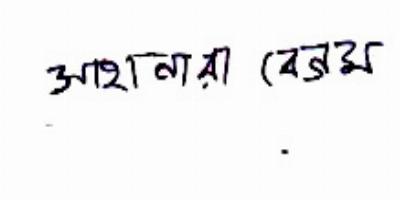 আহানারা বেগম